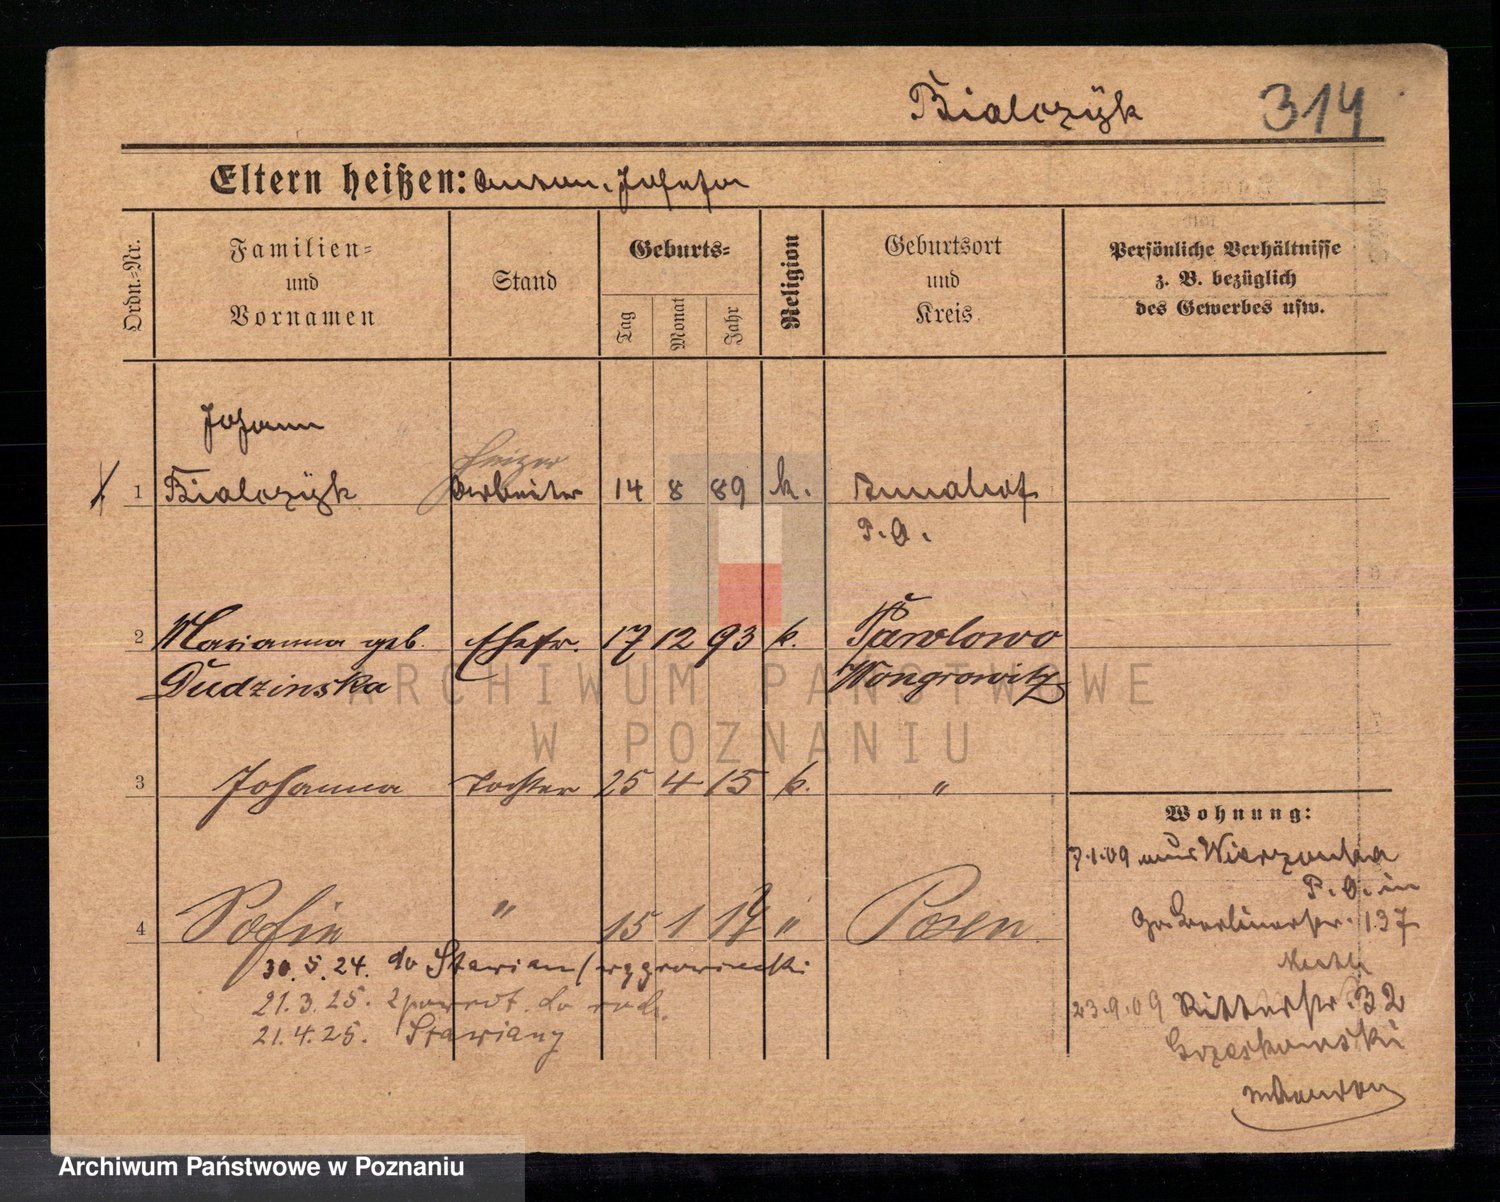 Bialczÿk 314
Eltern heißen: Anton, Josefa
Ordn.-Nr.
Familien- und Vornamen
Stand
Geburts-
Tag
Monat
Jahr
Religion
Geburtsort und Kreis
Persönliche Verhältnisse z. B. bezüglich des Gewerbes usw.
Johann
Heizer
1 Bialczÿk Arbeiter 14 8 89 k. Annahof
P. O.
2 Marianna geb. Ehefr. 17 12 93 k. Pawlowo
Dudzinska Wongrowitz
3 Johanna Tochter 25 4 15 k. "
Wohnung:
7.1.09 aus Wierzonka
P. O. in
Gr. Berlinerstr. 137
4 Sofie " 15 1 19 " Posen
30.5.24. do Stawian / wągrowiecki
21.3.25. z powrot. do rodz.
21.4.25. Stawiany
23.9.09 Ritterstr. 32
Grzeskowski
ARCHIWUM PAŃSTWOWE
W POZNANIU
Archiwum Państwowe w Poznaniu